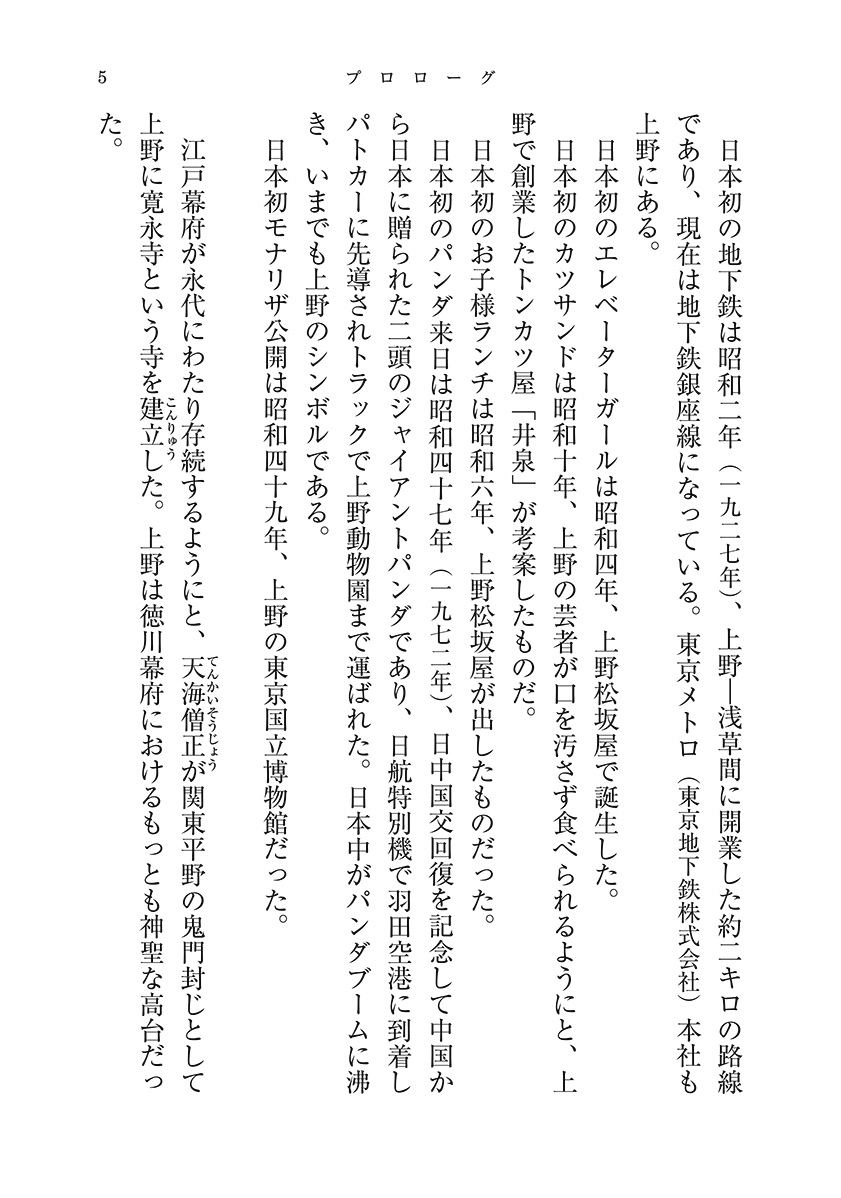 5
プロローグ
日本初の地下鉄は昭和二年（一九二七年）、上野―浅草間に開業した約二キロの路線
であり、現在は地下鉄銀座線になっている。東京メトロ（東京地下鉄株式会社）本社も
上野にある。
日本初のエレベーターガールは昭和四年、上野松坂屋で誕生した。
日本初のカツサンドは昭和十年、上野の芸者が口を汚さず食べられるようにと、上
野で創業したトンカツ屋「井泉」が考案したものだ。
日本初のお子様ランチは昭和六年、上野松坂屋が出したものだった。
日本初のパンダ来日は昭和四十七年（一九七二年）、日中国交回復を記念して中国か
ら日本に贈られた二頭のジャイアントパンダであり、日航特別機で羽田空港に到着し
パトカーに先導されトラックで上野動物園まで運ばれた。日本中がパンダブームに沸
き、いまでも上野のシンボルである。
日本初モナリザ公開は昭和四十九年、上野の東京国立博物館だった。
江戸幕府が永代にわたり存続するようにと、天海僧正が関東平野の鬼門封じとして
てんかいそうじょう
上野に寛永寺という寺を建立した。上野は徳川幕府におけるもっとも神聖な高台だっ
こんりゅう
た。